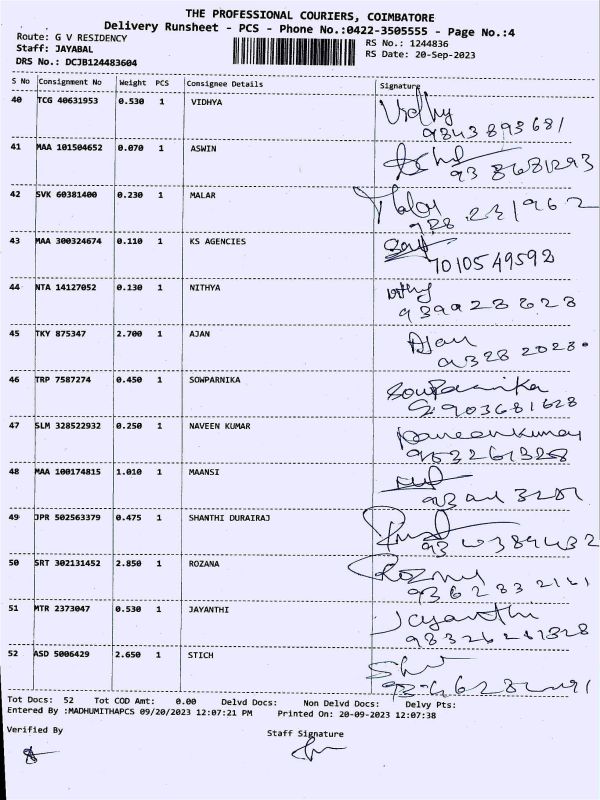 THE PROFESSIONAL COURIERS, COIMBATORE
Delivery Runsheet - PCS - Phone No.:0422-3505555 - Page No.:4
Route: G V RESIDENCY
RS No.: 1244836
Staff: JAYABAL
RS Date: 20-Sep-2023
DRS No.: DCJB124483604
S No Consignment No Weight PCS Consignee Details Signature
40 TCG 40631953 0.530 1 VIDHYA Vidhy
9843893681
41 MAA 101504652 0.070 1 ASWIN
9386812 93
42 SVK 60381400 0.230 1 MALAR Malar
43 MAA 300324674 0.110 1 KS AGENCIES
7010549592
44 NTA 14127052 0.130 1 NITHYA
45 TKY 875347 2.700 1 AJAN Ajan
46 TRP 7587274 0.450 1 SOWPARNIKA Sowparnika
47 SLM 328522932 0.250 1 NAVEEN KUMAR naveenkumar
48 MAA 100174815 1.010 1 MAANSI
49 JPR 502563379 0.475 1 SHANTHI DURAIRAJ
50 SRT 302131452 2.850 1 ROZANA
51 MTR 2373047 0.530 1 JAYANTHI Jayanthi
52 ASD 5006429 2.650 1 STICH
Tot Docs: 52 Tot COD Amt: 0.00 Delvd Docs: Non Delvd Docs: Delvy Pts:
Entered By :MADHUMITHAPCS 09/20/2023 12:07:21 PM Printed On: 20-09-2023 12:07:38
Verified By Staff Signature